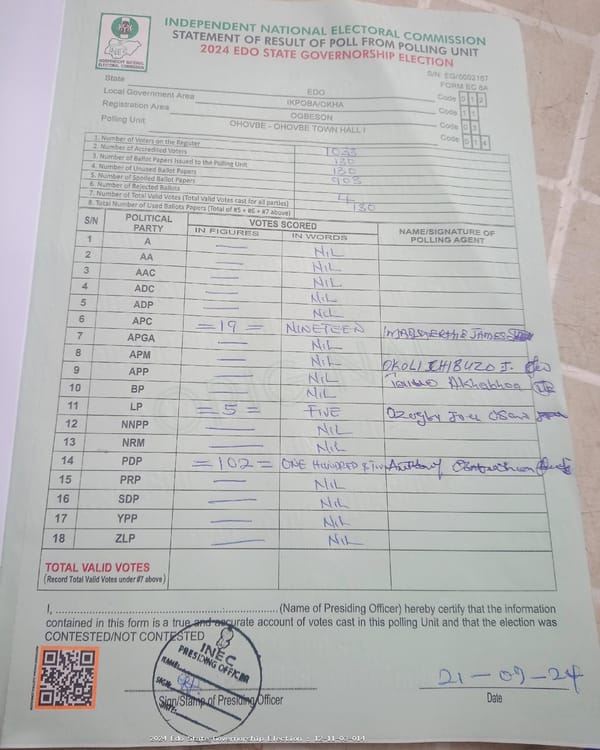 INDEPENDENT NATIONAL ELECTORAL COMMISSION
STATEMENT OF RESULT OF POLL FROM POLLING UNIT
2024 EDO STATE GOVERNORSHIP ELECTION
INEC
INDEPENDENT NATIONAL ELECTORAL COMMISSION
S/N: EG/0002167
FORM EC 8A
State EDO Code 0 1 2
Local Government Area IKPOBA/OKHA Code 1 1
Registration Area OGBESON Code 0 3
Polling Unit OHOVBE - OHOVBE TOWN HALL I Code 0 1 4
1. Number of Voters on the Register 1033
2. Number of Accredited Voters 130
3. Number of Ballot Papers Issued to the Polling Unit
4. Number of Unused Ballot Papers 903
5. Number of Spoiled Ballot Papers
6. Number of Rejected Ballots 4
7. Number of Total Valid Votes (Total Valid Votes cast for all parties)
8. Total Number of Used Ballots Papers (Total of #5 + #6 + #7 above) 130
S/N POLITICAL PARTY VOTES SCORED NAME/SIGNATURE OF POLLING AGENT
IN FIGURES IN WORDS
1 A — NIL
2 AA — NIL
3 AAC — NIL
4 ADC — NIL
5 ADP — NIL
6 APC =19= NINETEEN JAMES
7 APGA — NIL
8 APM — NIL OKOLI CHIBUZO J.
9 APP — NIL
10 BP — NIL
11 LP =5= FIVE
12 NNPP — NIL
13 NRM — NIL
14 PDP =102= ONE HUNDRED & TWO Anthony
15 PRP — NIL
16 SDP — NIL
17 YPP — NIL
18 ZLP — NIL
TOTAL VALID VOTES
(Record Total Valid Votes under #7 above)
I, ........................................................(Name of Presiding Officer) hereby certify that the information
contained in this form is a true and accurate account of votes cast in this polling Unit and that the election was
CONTESTED/NOT CONTESTED
INEC
PRESIDING OFFICER
NAME:
SIGN:
DATE:
Sign/Stamp of Presiding Officer
21-09-24
Date
2024 Edo State Governorship Election - 12_11_03_014